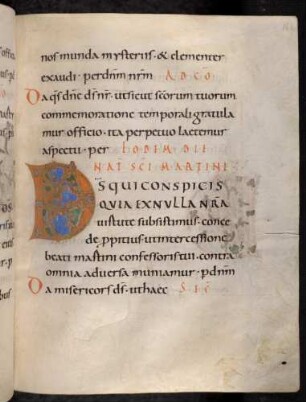 nos munda mysteriis · & clementer
exaudi · per dnm nrm A D C̅O̅
Da qs dne ds nr · ut sicut scorum tuorum
commemoratione temporali gratula
mur officio · ita perpetuo laetemur
aspectu · per
NAT SC̅I MARTINI
DS QUI CONSPICIS
QUIA EX NULLA NRA
uirtute subsistimus · conce
de ppitius ut intercessione
beati martini confessoris tui · contra
omnia aduersa muniamur · p dnm
Da misericors ds · ut haec S I C